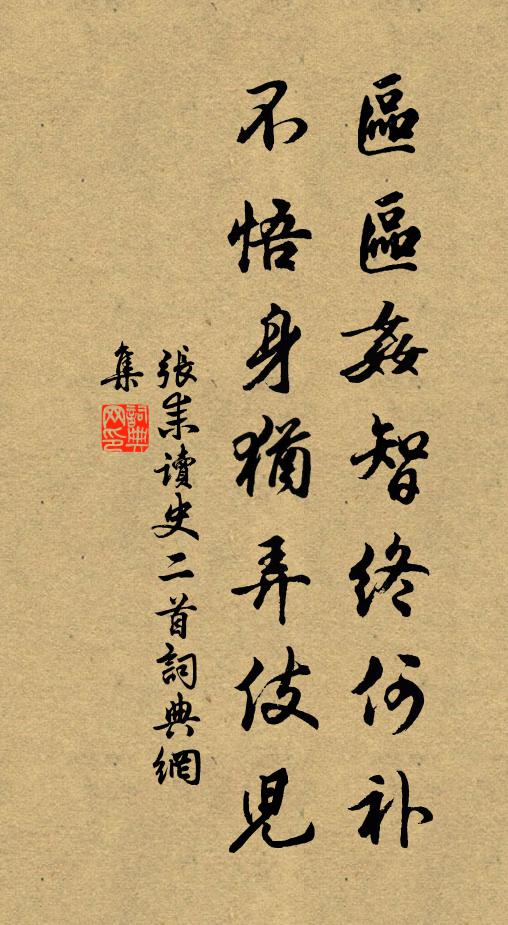 區區姦智終何补
不悟身猶弄伎兒
張耒讀史二首詞典網
集
詞典网印